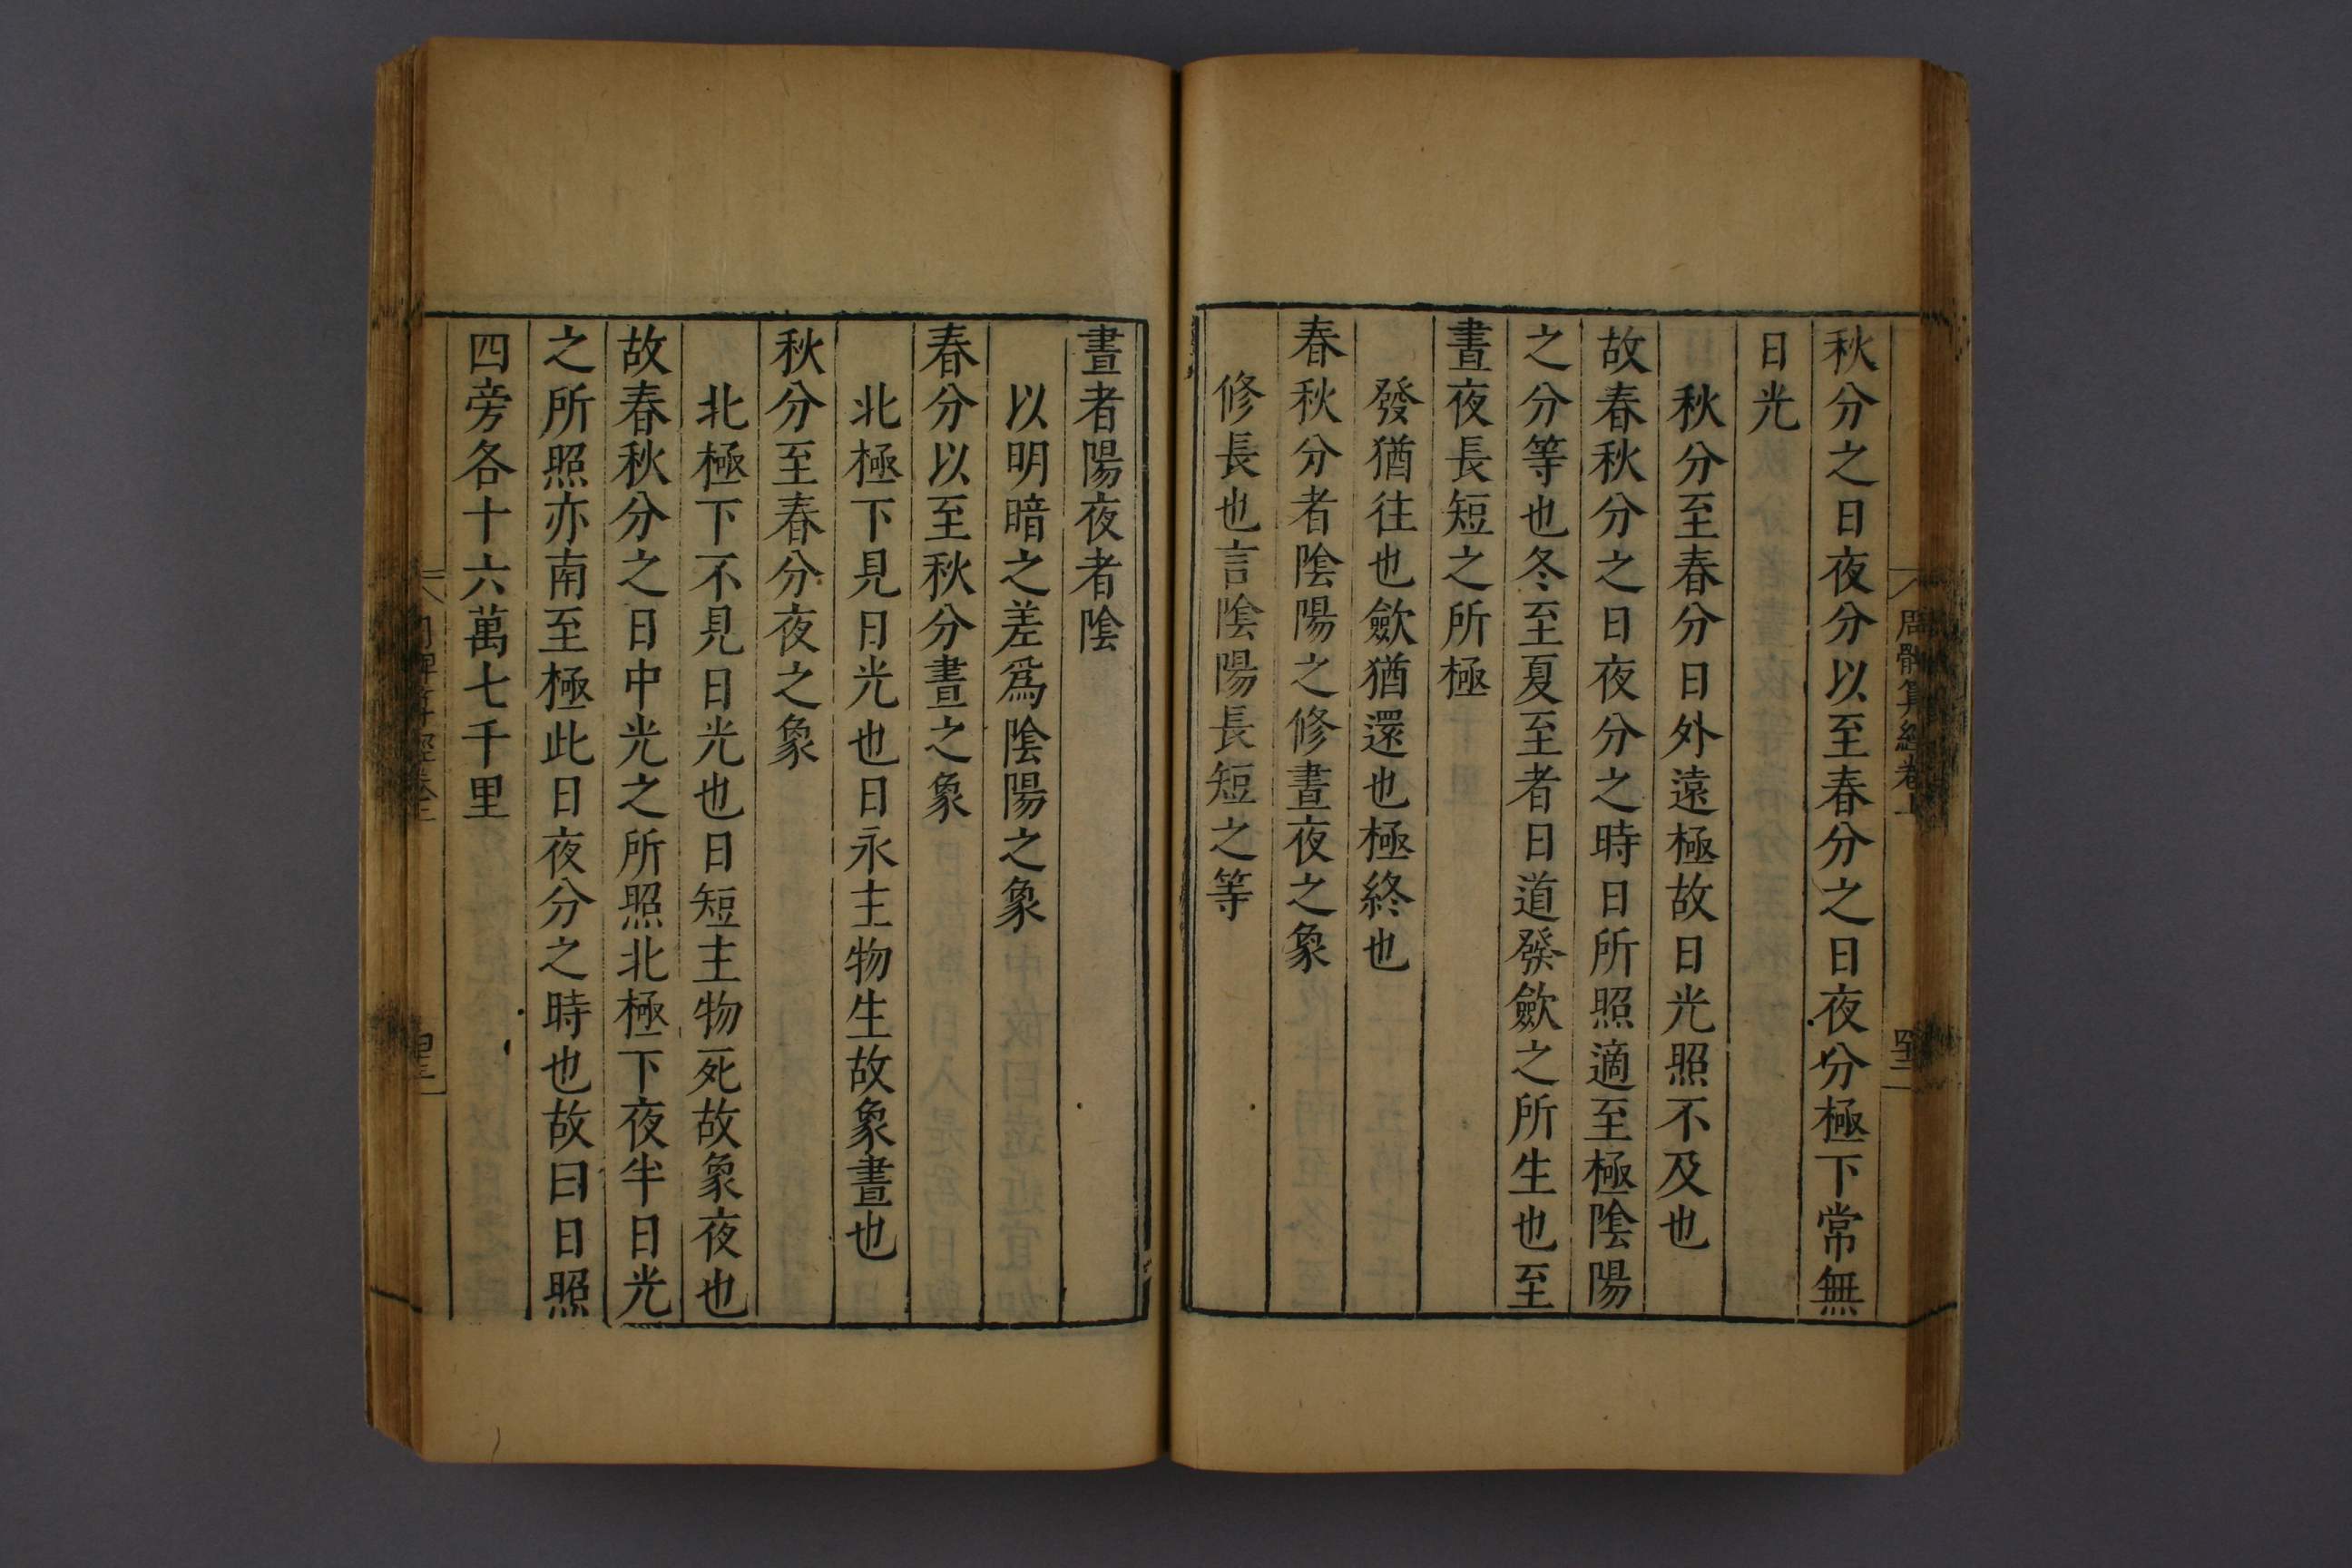 秋分之日夜分以至春分之日夜分極下常無
日光
秋分至春分日外遠極故日光照不及也
故春秋分之日夜分之時日所照適至極陰陽
之分等也冬至夏至者日道發歛之所生也至
晝夜長短之所極
發猶往也歛猶還也極終也
春秋分者陰陽之修晝夜之象
修長也言陰陽長短之等
晝者陽夜者陰
以明暗之差爲陰陽之象
春分以至秋分晝之象
北極下見日光也日永主物生故象晝也
秋分至春分夜之象
北極下不見日光也日短主物死故象夜也
故春秋分之日中光之所照北極下夜半日光
之所照亦南至極此日夜分之時也故曰日照
四旁各十六萬七千里
周髀算經卷上